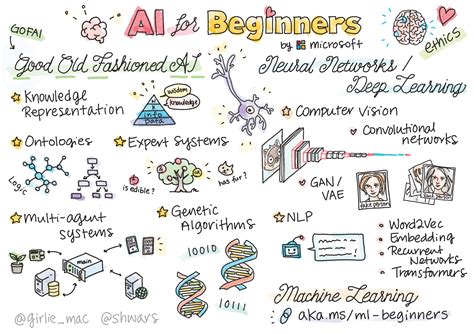 AI for Beginners
by microsoft
GOFAI
Good Old Fashioned AI
Knowledge
Representation
wisdom
Knowledge
info
Data
Ontologies
Logic
Expert Systems
is edible?
has fur?
Multi-agent
systems
main
Genetic
Algorithms
10010
10111
@girlie_mac @shwars
ethics
Neural Networks /
Deep Learning
Computer Vision
Convolutional
networks
GAN/
VAE
fake person
NLP
Word2Vec
Embedding
Recurrent
Networks
Transformers
Machine Learning
aka.ms/ml-beginners